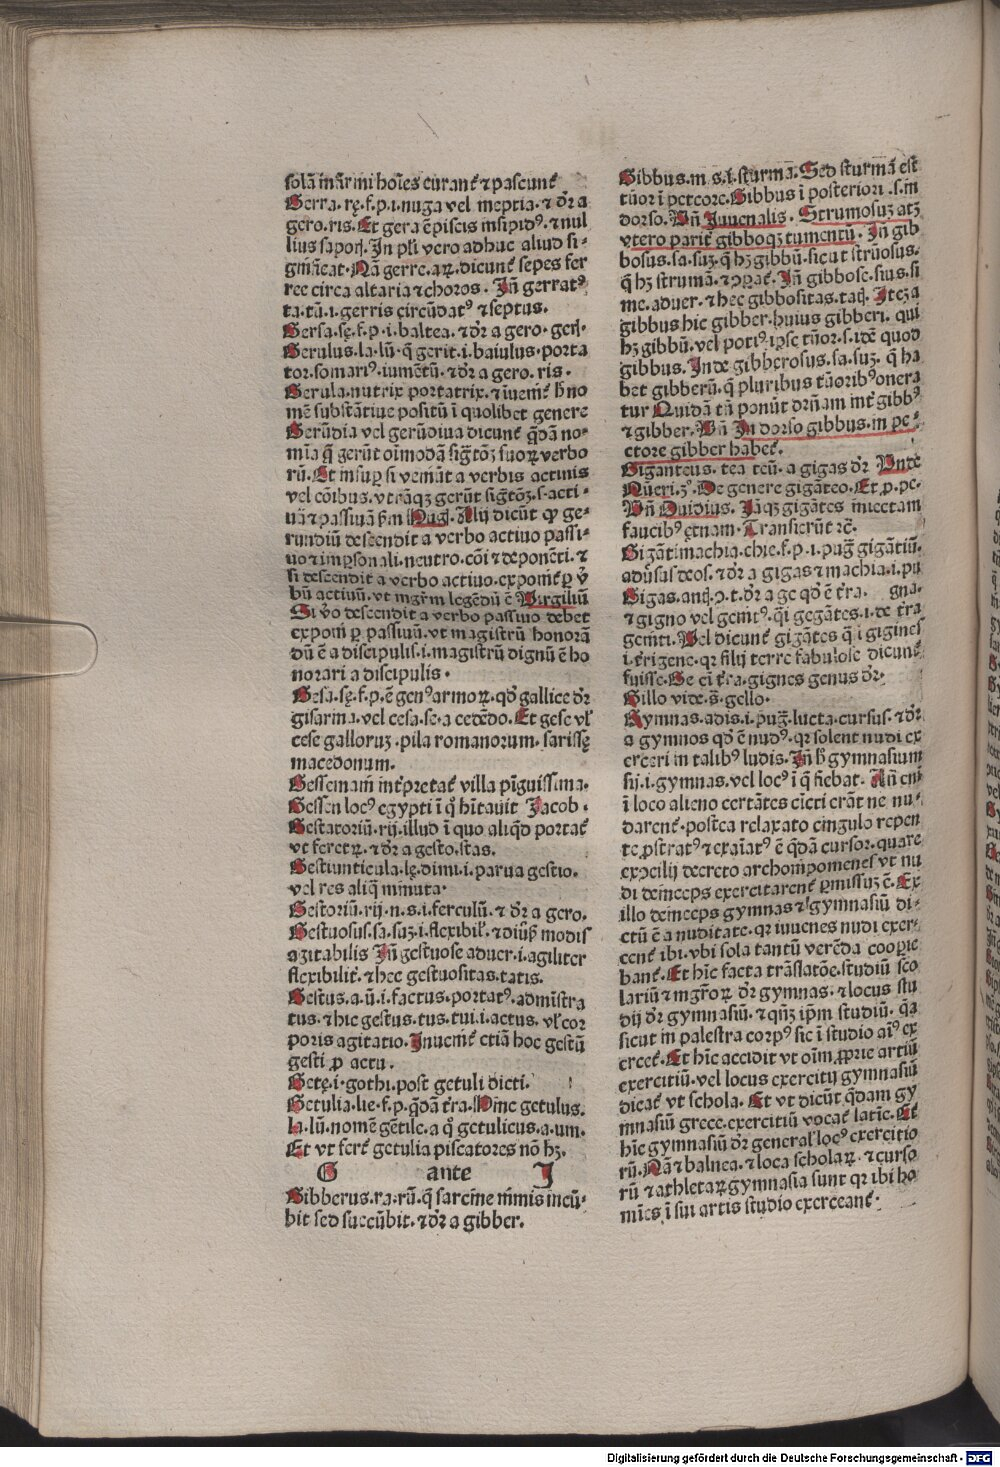 solā inārmi hoīes curant᷑ ⁊ pascunt᷑
Gerra.rę.f.p.i.nuga vel ineptia.⁊ dr̄ a
gero.ris.Et gera ē piscis insipidꝰ.⁊ nul
lius saporꝭ.In pl̄i vero adhuc aliud si⸗
gnīficat.Nā gerre.aꝝ.dicunt᷑ sepes fer
ree circa altaria ⁊ choros.Iñ gerratꝰ
ta.tū.i.gerris circūdatꝰ ⁊ septus.
Gersa.sę.f.p.i.baltea.⁊ dr̄ a gero.gerꝭ.
Gerulus.la.lū.q̄ gerit.i.baiulus.porta
tor.somariꝰ.iumētū.⁊ dr̄ a gero.ris.
Gerula.nutrix portatrix.⁊ inuenit᷑ h̄ no
mē substātiue positū ī quolibet genere
Gerūdia vel gerūdiua dicunt᷑ q̄dā no⸗
mia q̄ gerūt oīmodā sigtōꝫ suoꝝ verbo
rū.Et insuꝑ si veniāt a verbis actiuis
vel cōibus.vtrāqꝫ gerūt sigtōꝫ.s.acti⸗
uā ⁊ passiuā ẜm Hugꝭ.Alij dicūt ꝙ ge⸗
rundiū descendit a verbo actiuo passi⸗
uo ⁊ imꝑsonali.neutro.cōi ⁊ deponēti.⁊
si descendit a verbo actiuo.exponit᷑ ꝑ v̄
bū actiuū.vt mgr̄m legēdū ē Virgiliū
Si v̄o descendit a verbo passiuo debet
exponi ꝑ passiuū.vt magistrū honorā
dū ē a discipulis.i.magistrū dignū ē ho
norari a discipulis.
Gesa.sę.f.p.ē genꝰ armoꝝ.qd̄ gallice dr̄
gisarma.vel cesa.se.a cedēdo.Et gese vl̄
cese galloruꝫ.pila romanorum.sarissę
macedonum.
Gessemani int̄pretat᷑ villa pīguissima.
Gessen locꝰ egypti ī q̄ hītauit Jacob.
Gestatoriū.rij.illud ī quo aliqd̄ portat᷑
vt feretꝝ.⁊ dr̄ a gesto.stas.
Gestiunticula.lę.dimi.i.parua gestio.
vel res aliq̄ minuta.
Gestoriū.rij.n.s.i.ferculū.⁊ dr̄ a gero.
Gestuosus.sa.suꝫ.i.flexibil᷑.⁊ diūsꝭ modis
agitabilis Iñ gestuose aduer.i.agiliter
flexibilit᷑.⁊ hec gestuositas.tatis.
Gestus.a.ū.i.factus.portatꝰ.adminīstra
tus.⁊ hic gestus.tus.tui.i.actus.vl̄ cor
poris agitatio.Inuenit᷑ etiā hoc gestū
gesti ꝓ actu.
Getę.i.gothi.post getuli dicti.
Getulia.lie.f.p.q̄dā t̄ra.Hinc getulus.
la.lū.nomē gētile.a q̄ getulicus.a.um.
Et vt fert᷑ getulia piscatores nō hꝫ.
G ante I
Gibberus.ra.rū.q̄ sarcine nimis incū⸗
bit sed succūbit.⁊ dr̄ a gibber.
Gibbus.m.s.ī.sturma.Sed sturmā est
tūor ī pectore.Gibbus ī posteriori.s.in
dorso.Vñ Iuuenalis.Strumosuꝫ atqꝫ
vtero parit᷑ gibboqꝫ tumentū.Iñ gib
bosus.sa.suꝫ.q̄ hꝫ gibbū.sicut strūosus.
q̄ hꝫ strumā.⁊ ꝯꝑat᷑.Iñ gibbose.sius.si
me.aduer.⁊ hec gibbositas.taqꝭ.Ite ꝫ a
gibbus hic gibber.huius gibberi.qui
hꝫ gibbū.vel potiꝰ ip̄se tūor.s.idē quod
gibbus.Inde gibberosus.sa.suꝫ.q̄ ha
bet gibberū.q̄ pluribus tūoribꝰ onera
tur Quidā tn̄ ponūt dr̄niam int᷑ gibbꝰ
⁊ gibber.Vñ In dorso gibbus.in pe⸗
ctore gibber habet᷑.
Giganteus.tea teū.a gigas dr̄ Vnde
Nueri.ꝫꝰ.De genere gigāteo.Et ꝓ.pe.
Vñ Ouidius.Iāqꝫ gigātes iniectam
faucibꝰ ętnam.Transierūt ⁊c̄.
Gigātimachia.chie.f.p.i.pugꝭ gigātiū.
adūsus deos.⁊ dr̄ a gigas ⁊ machia.i.pu
Gigas.antꝭ.ꝯ.t.dr̄ a ge qd̄ ē t̄ra. gna.
⁊ gigno vel genitꝰ.qi gegātes.i.de t̄ra
geniti.Vel dicunt᷑ gigātes q̄i gigines
i.t̄rigene.qr filij terre fabulose dicunt᷑
fuisse.Ge eī t̄ra.gignes genus dr̄.
Gillo vide.s̄.gello.
Gymnas.adis.i.pugꝭ.lucta.cursus.⁊ dr̄
a gymnos qd̄ ē nudꝰ.qr solent nudi ex
erceri in talibꝰ ludis.Iñ h̄ gymnasium
sij.i.gymnas.vel locꝰ ī q̄ fiebat.Añ eni
ī loco alieno certātes cīcti erāt ne nu⸗
darent᷑.postea relaxato cingulo repen
te ꝓstratꝰ ⁊ exaīatꝰ ē q̄dā cursor.quare
expcilij decreto archompomenes vt nu
di deinceps exercitarent᷑ ꝑmissuꝫ ē.Ex
illo deinceps gymnas ⁊ gymnasiū di⸗
ctū ē a nuditate.qr iuuenes nudi exer⸗
cent᷑ ibi.vbi sola tantū verēda coopie
bant᷑.Et hinc facta trāslatōe.studiū sco
lariū ⁊ mgr̄oꝝ dr̄ gymnas.⁊ locus stu
dij dr̄ gymnasiū.⁊ qn̄qꝫ ip̄m studiū.q̄a
sicut in palestra corpꝰ sic ī studio aīꝰ ex
ercet᷑.Et hinc accidit vt oīm ꝓprie artiū
exercitiū.vel locus exercitij gymnasiū
dicat᷑ vt schola.Et vt dicūt q̄dam gy
mnasiū grece.exercitiū vocat᷑ latine.Et
hinc gymnasiū dr̄ general᷑ locꝰ exercitio
rū.Nā ⁊ balnea.⁊ loca scholaꝝ.⁊ curso
rū ⁊ athletaꝝ gymnasia sunt qr ibi ho
mines ī sui artis studio exerceant᷑.
Digitalisierung gefördert durch die Deutsche Forschungsgemeinschaft - DFG